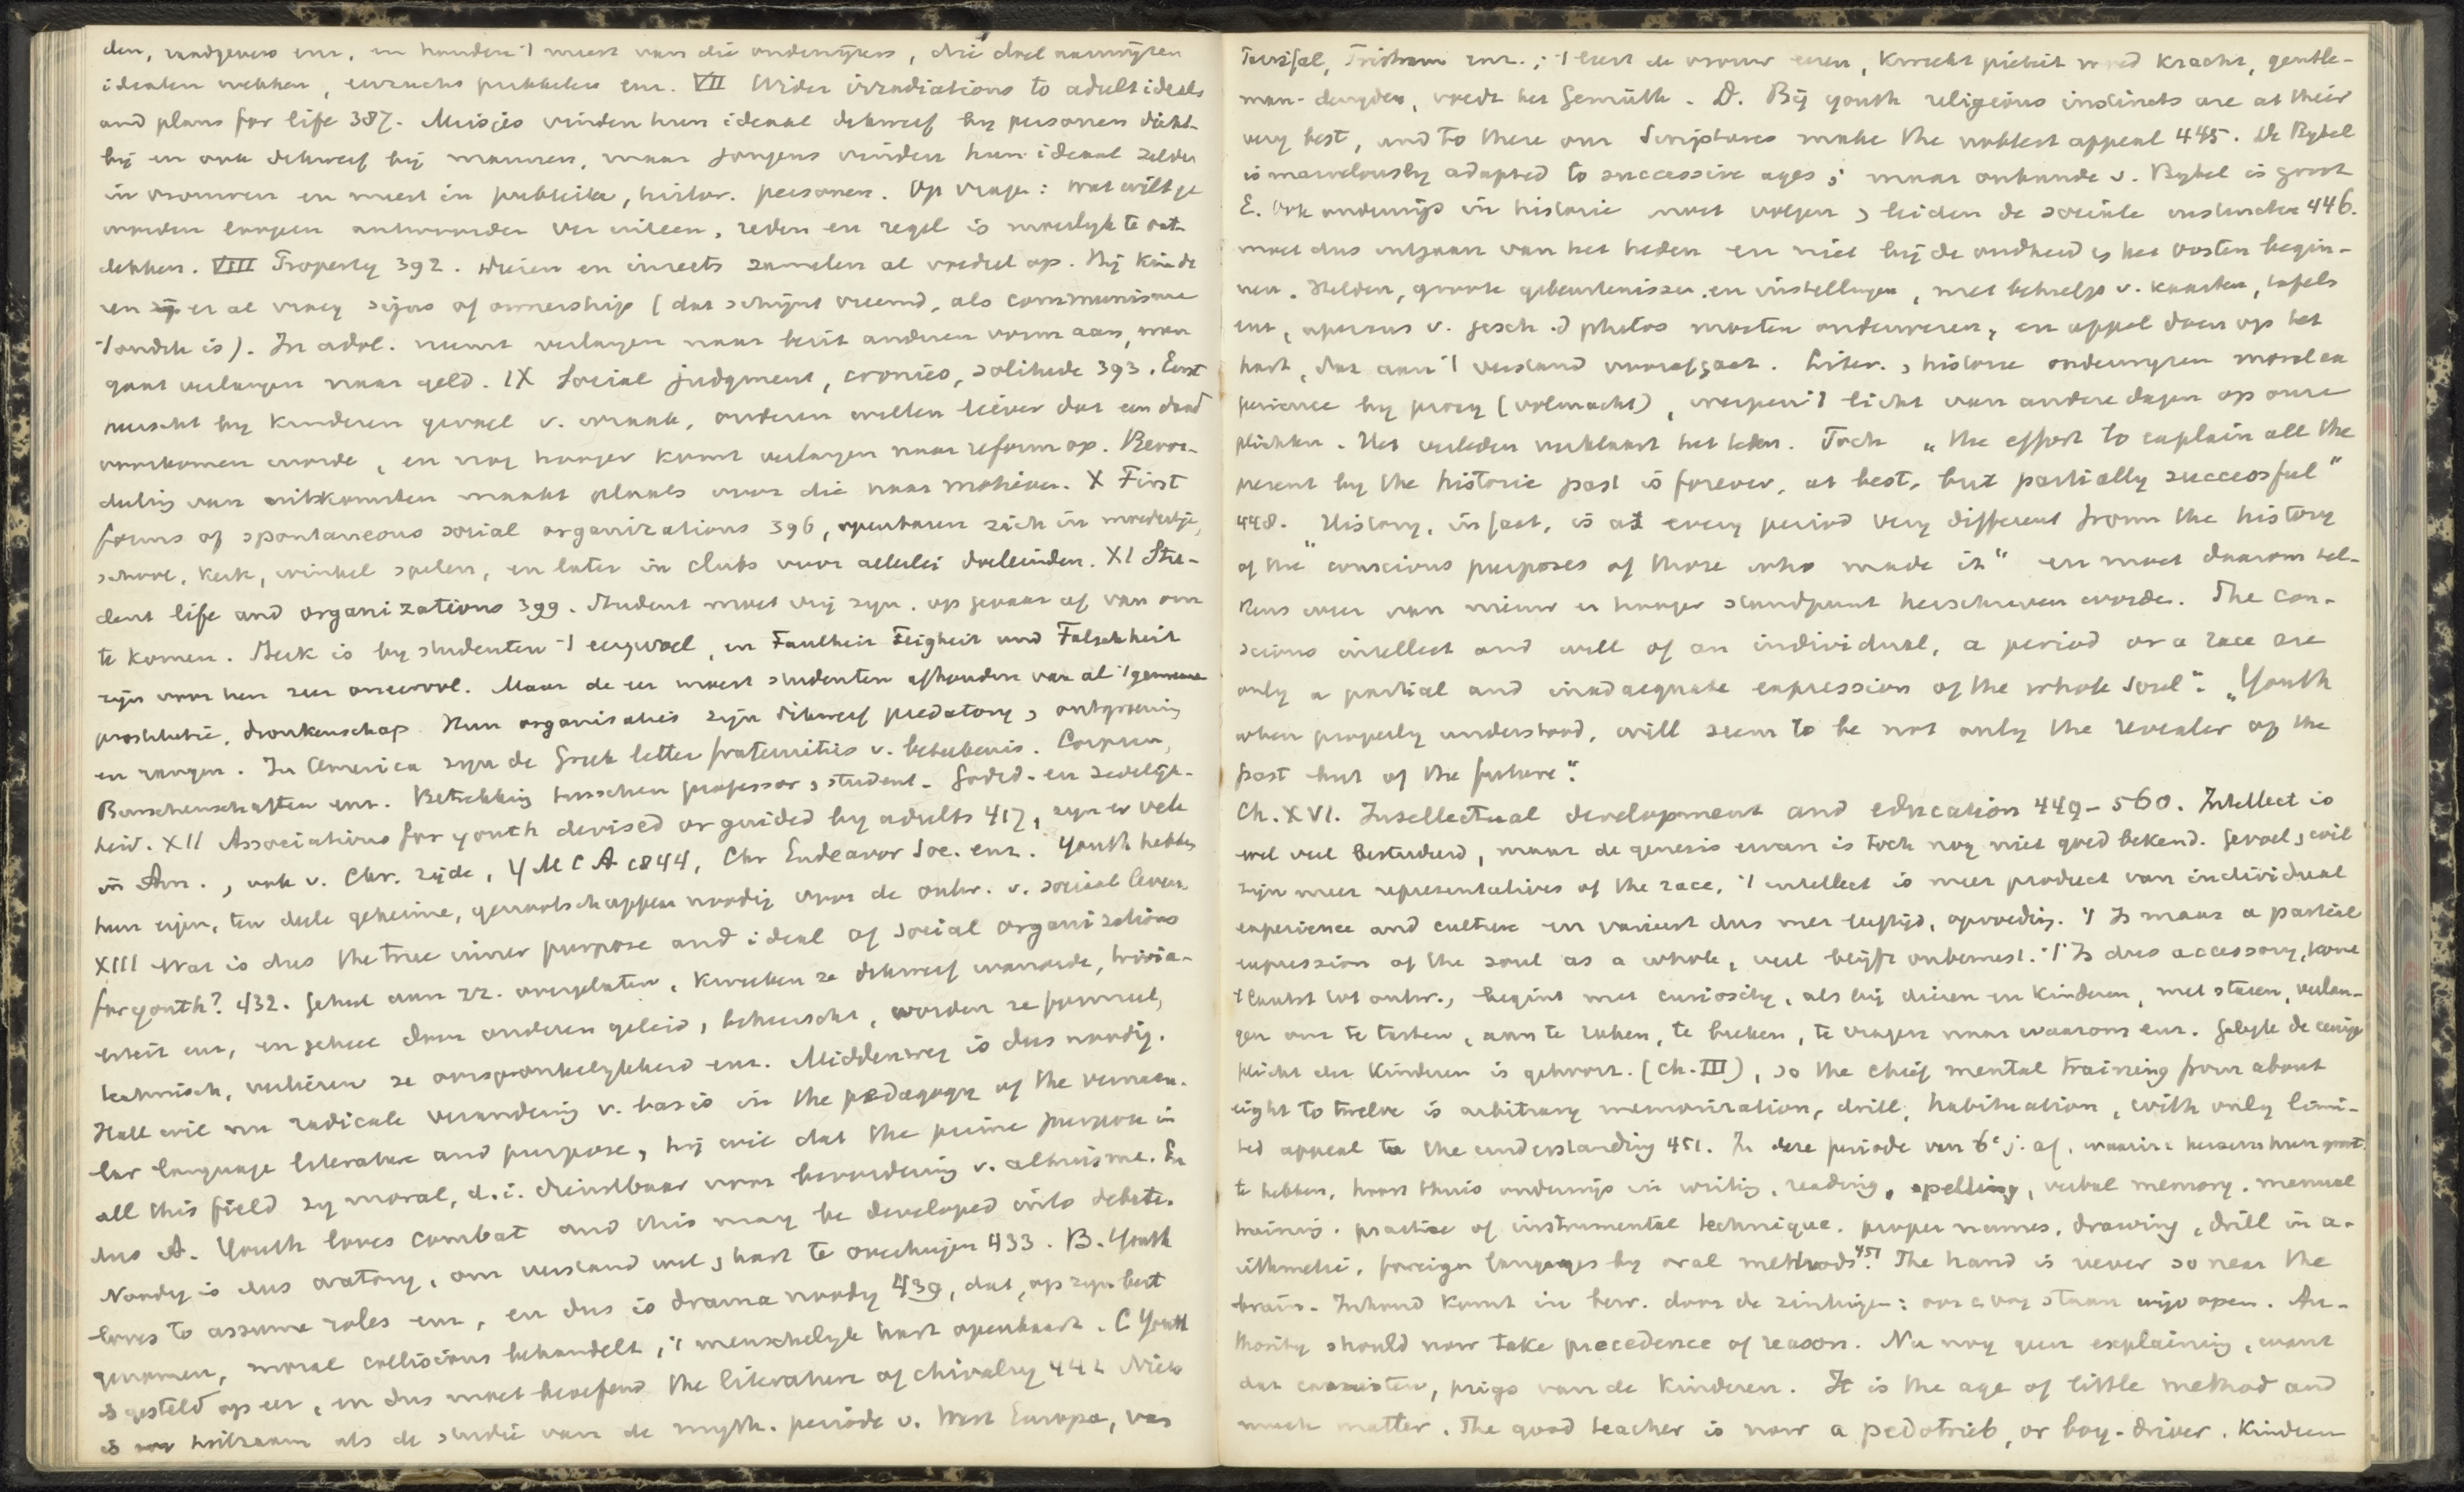 den, raadgevers enz. en houden 't meest van die onderwijzers, die doel aanwijzen
idealen wekken, eerzucht prikkelen enz. VII Wider irradiations to adult ideals
and plans for life 387. Meisjes vinden hun ideaal dikwerf by personen dicht-
bij en ook dikwerf bij mannen, maar jongens vinden hun ideaal zelden
in vrouwen en meest in publieke, histor. personen. Op vrage: wat wilt ge
worden loopen antwoorden ver uiteen, reden en regel is moeilyk te ont-
dekken. VIII Property 392. Dieren en insects zamelen al voedsel op. Bij kinde
ren zijn er al vroeg signs of ownership (dat schijnt vreemd, als communisme
't oudste is). In adol. neemt verlangen naar bezit anderen vorm aan, men
gaat verlangen naar geld. IX Social judgment, cronies, solitude 393. Eerst
heerscht by kinderen gevoel v. wraak, ouderen willen liever dat een daad
voorkomen worde, en nog hooger komt verlangen naar reform op. Beoor-
deling van uitkomsten maakt plaats voor die naar motieven. X First
forms of spontaneous social organizations 396, openbaren zich in moedertje,
school, kerk, winkel spelen, en later in clubs voor allerlei doeleinden. XI Stu-
dent life and organizations 399. Student moet vrij zyn. op gevaar af van om
te komen. Gek is by studenten 't eergevoel, en Faulheit Feigheit und Falschheit
zijn voor hen zeer oneervol. Maar de eer moest studenten afhouden van al 't gemeene
prostitutie, dronkenschap. Hun organisaties zijn dikwerf predatory, ontgroening
en rangen. In America zyn de Greek letter fraternities v. beteekenis. Corpsen,
Burschenschaften enz. Betrekking tusschen professor, student. Godsd. en zedelijk-
heid. XII Associations for youth devised or guided by adults 417, zyn er vele
in Am., ook v. Chr. zijde, Y M C A 1844, Chr Endeavor Soc. enz. Youth hebben
hun eigen, ten deele geheime, genootschappen noodig voor de ontw. v. sociaal leven.
XIII Wat is dus the true inner purpose and ideal of social organizations
for youth? 432. Geheel aan zz. overgelaten, kweeken ze dikwerf wanorde, trivia-
liteit enz, en geheel door anderen geleid, beheerscht, worden ze formeel,
technisch, verliezen ze oorspronkelykheid enz. Middenweg is dus noodig.
Hall wil nu radicale verandering v. basis in the pedagogy of the vernacu-
lar language literature and purpose, hij wil dat the prime purpose in
all this field zy moral, d.i. dienstbaar voor bevordering v. altruisme. En
dus A. Youth loves combat and this may be developed into debate.
Noodig is dus oratory, om verstand met, hart te overtuigen 433. B. Youth
loves to assume roles enz, en dus is drama noodig 439, dat, op zyn best
genomen, moral collisions behandelt, 't menschelyk hart openbaart. C Youth
is gesteld op eer, en dus moet beoefend the literature of chivalry 442 Niets
is zoo heilzaam als de studie van de myth. periode v. West Europa, van
Parsifal, Tristram enz.; 't leert de vrouw eeren, kweekt piëteit moed kracht, gentle-
man-deugden, voedt het Gemüth. D. Bij youth religious instincts are at their
very best, and to these our Scriptures make the noblest appeal 445. De Bybel
is marvelously adapted to successive ages; maar onkunde v. Bybel is groot
E. Ook onderwijs in historie moet volgen, leiden de sociale instincten 446.
moet dus uitgaan van het heden en niet bij de oudheid, het Oosten begin-
nen. Helden, groote gebeurtenissen en instellingen, met behulp v. kaarten, tafels
enz, aperçus v. gesch. photos moeten onderwezen, en appel doen op het
hart, dat aan 't verstand voorafgaat. Liter., historie onderwyzen moral ex
perience by proxy (volmacht), werpen 't licht van andere dagen op onze
plichten. Het verleden verklaart het heden. Toch „the effort to explain all the
present by the historic past is forever, at best, but partially successful"
448. History, in fact, is at every period very different from the history
of the "conscious purposes of those who made it" en moet daarom tel-
kens weer van nieuw en hooger standpunt herschreven worden. The con-
scious intellect and will of an individual, a period or a race are
only a partial and inadaequate expression of the whole soul". „Youth
when properly understood, will seem to be not only the revealer of the
past but of the future".
Ch. XVI. Intellectual development and education 449-560. Intellect is
wel veel bestudeerd, maar de genesis ervan is toch nog niet goed bekend. Gevoel, wil
zijn meer representatives of the race, 't intellect is meer product van individual
experience and culture en varieert dus met leeftijd, opvoeding. 't Is maar a partial
expression of the soul as a whole, veel blijft onbewust. 't Is dus accessory, komt
't laatst tot ontw., begint met curiosity, als bij dieren en kinderen, met staren, verlan-
gen om te tasten, aan te raken, te breken, te vragen naar waarom enz. Gelyk de eenige
plicht der kinderen is gehoorz. (ch. III), so the chief mental training from about
eight to twelve is arbitrary memorization, drill, habituation, with only limi-
ted appeal to the understanding 451. In deze periode van 6e j. af, waarin hersens hun grootte
te hebben, hoort thuis onderwijs in writing, reading, spelling, verbal memory, manual
training, practise of instrumental technique, proper names, drawing, drill in a-
rithmetic, foreign languages by oral methods 451. The hand is never so near the
brain. Inhoud komt in bew. door de zintuigen: oor, oog staan wijd open. Au-
thority should now take precedence of reason. Nu nog geen explaining, want
dat maakt casuisten, prigs van de kinderen. It is the age of little method and
much matter. The good teacher is now a pedotrieb, or boy-driver. Kinderen